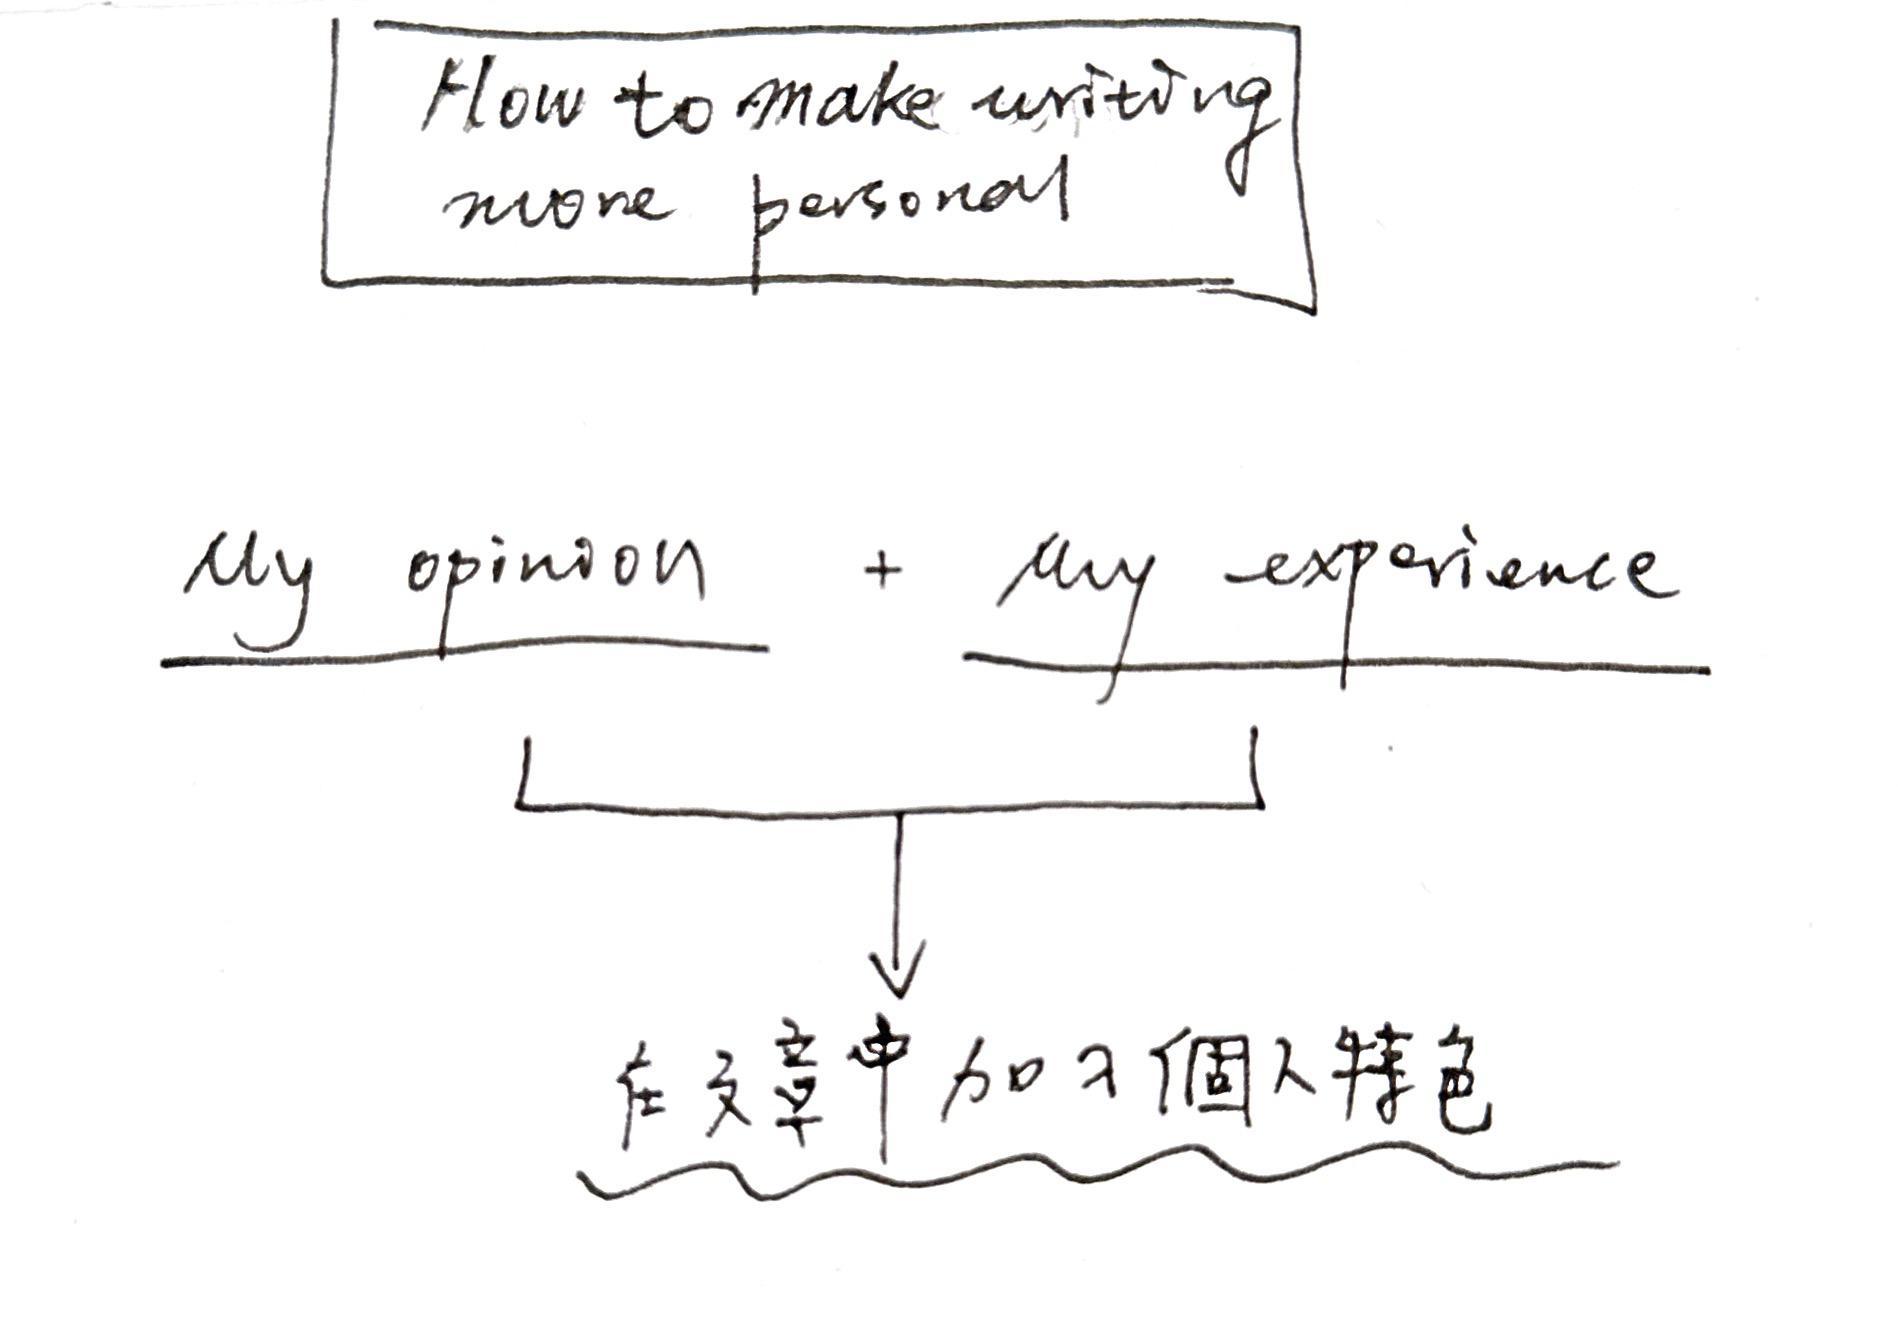 How to make writing
more personal
My opinion + My experience
在文章中加入個人特色